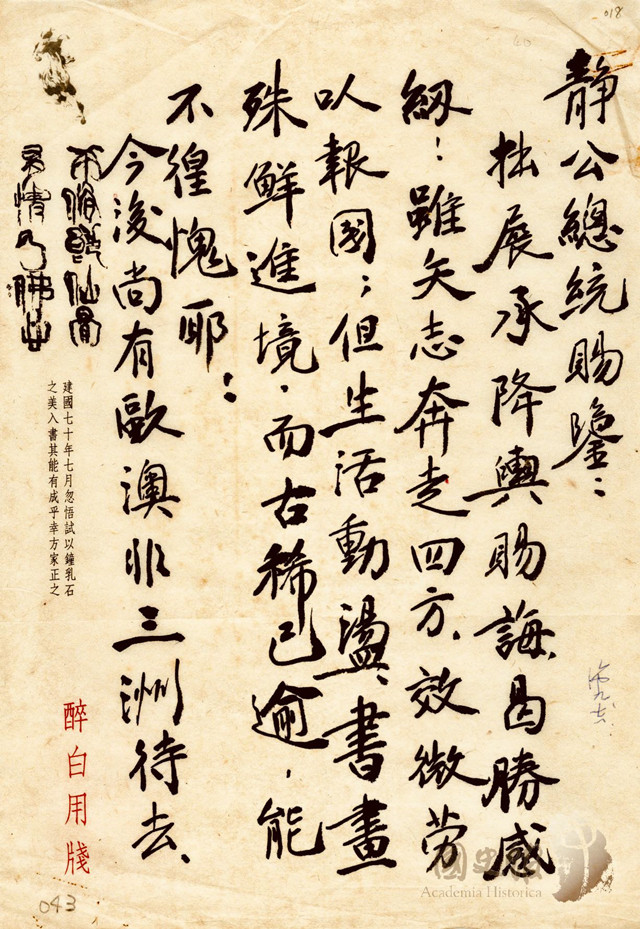 靜公總統賜鑒：
拙展承降輿賜誨，曷勝感
紉：雖矢志奔走四方、效微勞
以報國；但生活動盪、書畫
殊鮮進境，而古稀已逾，能
不徨愧耶：
今後尚有歐澳非三洲待去、
建國七十年七月忽悟試以鐘乳石
之美入書其能有成乎幸方家正之
醉白用牋
018
043
國史館
Academia Historica